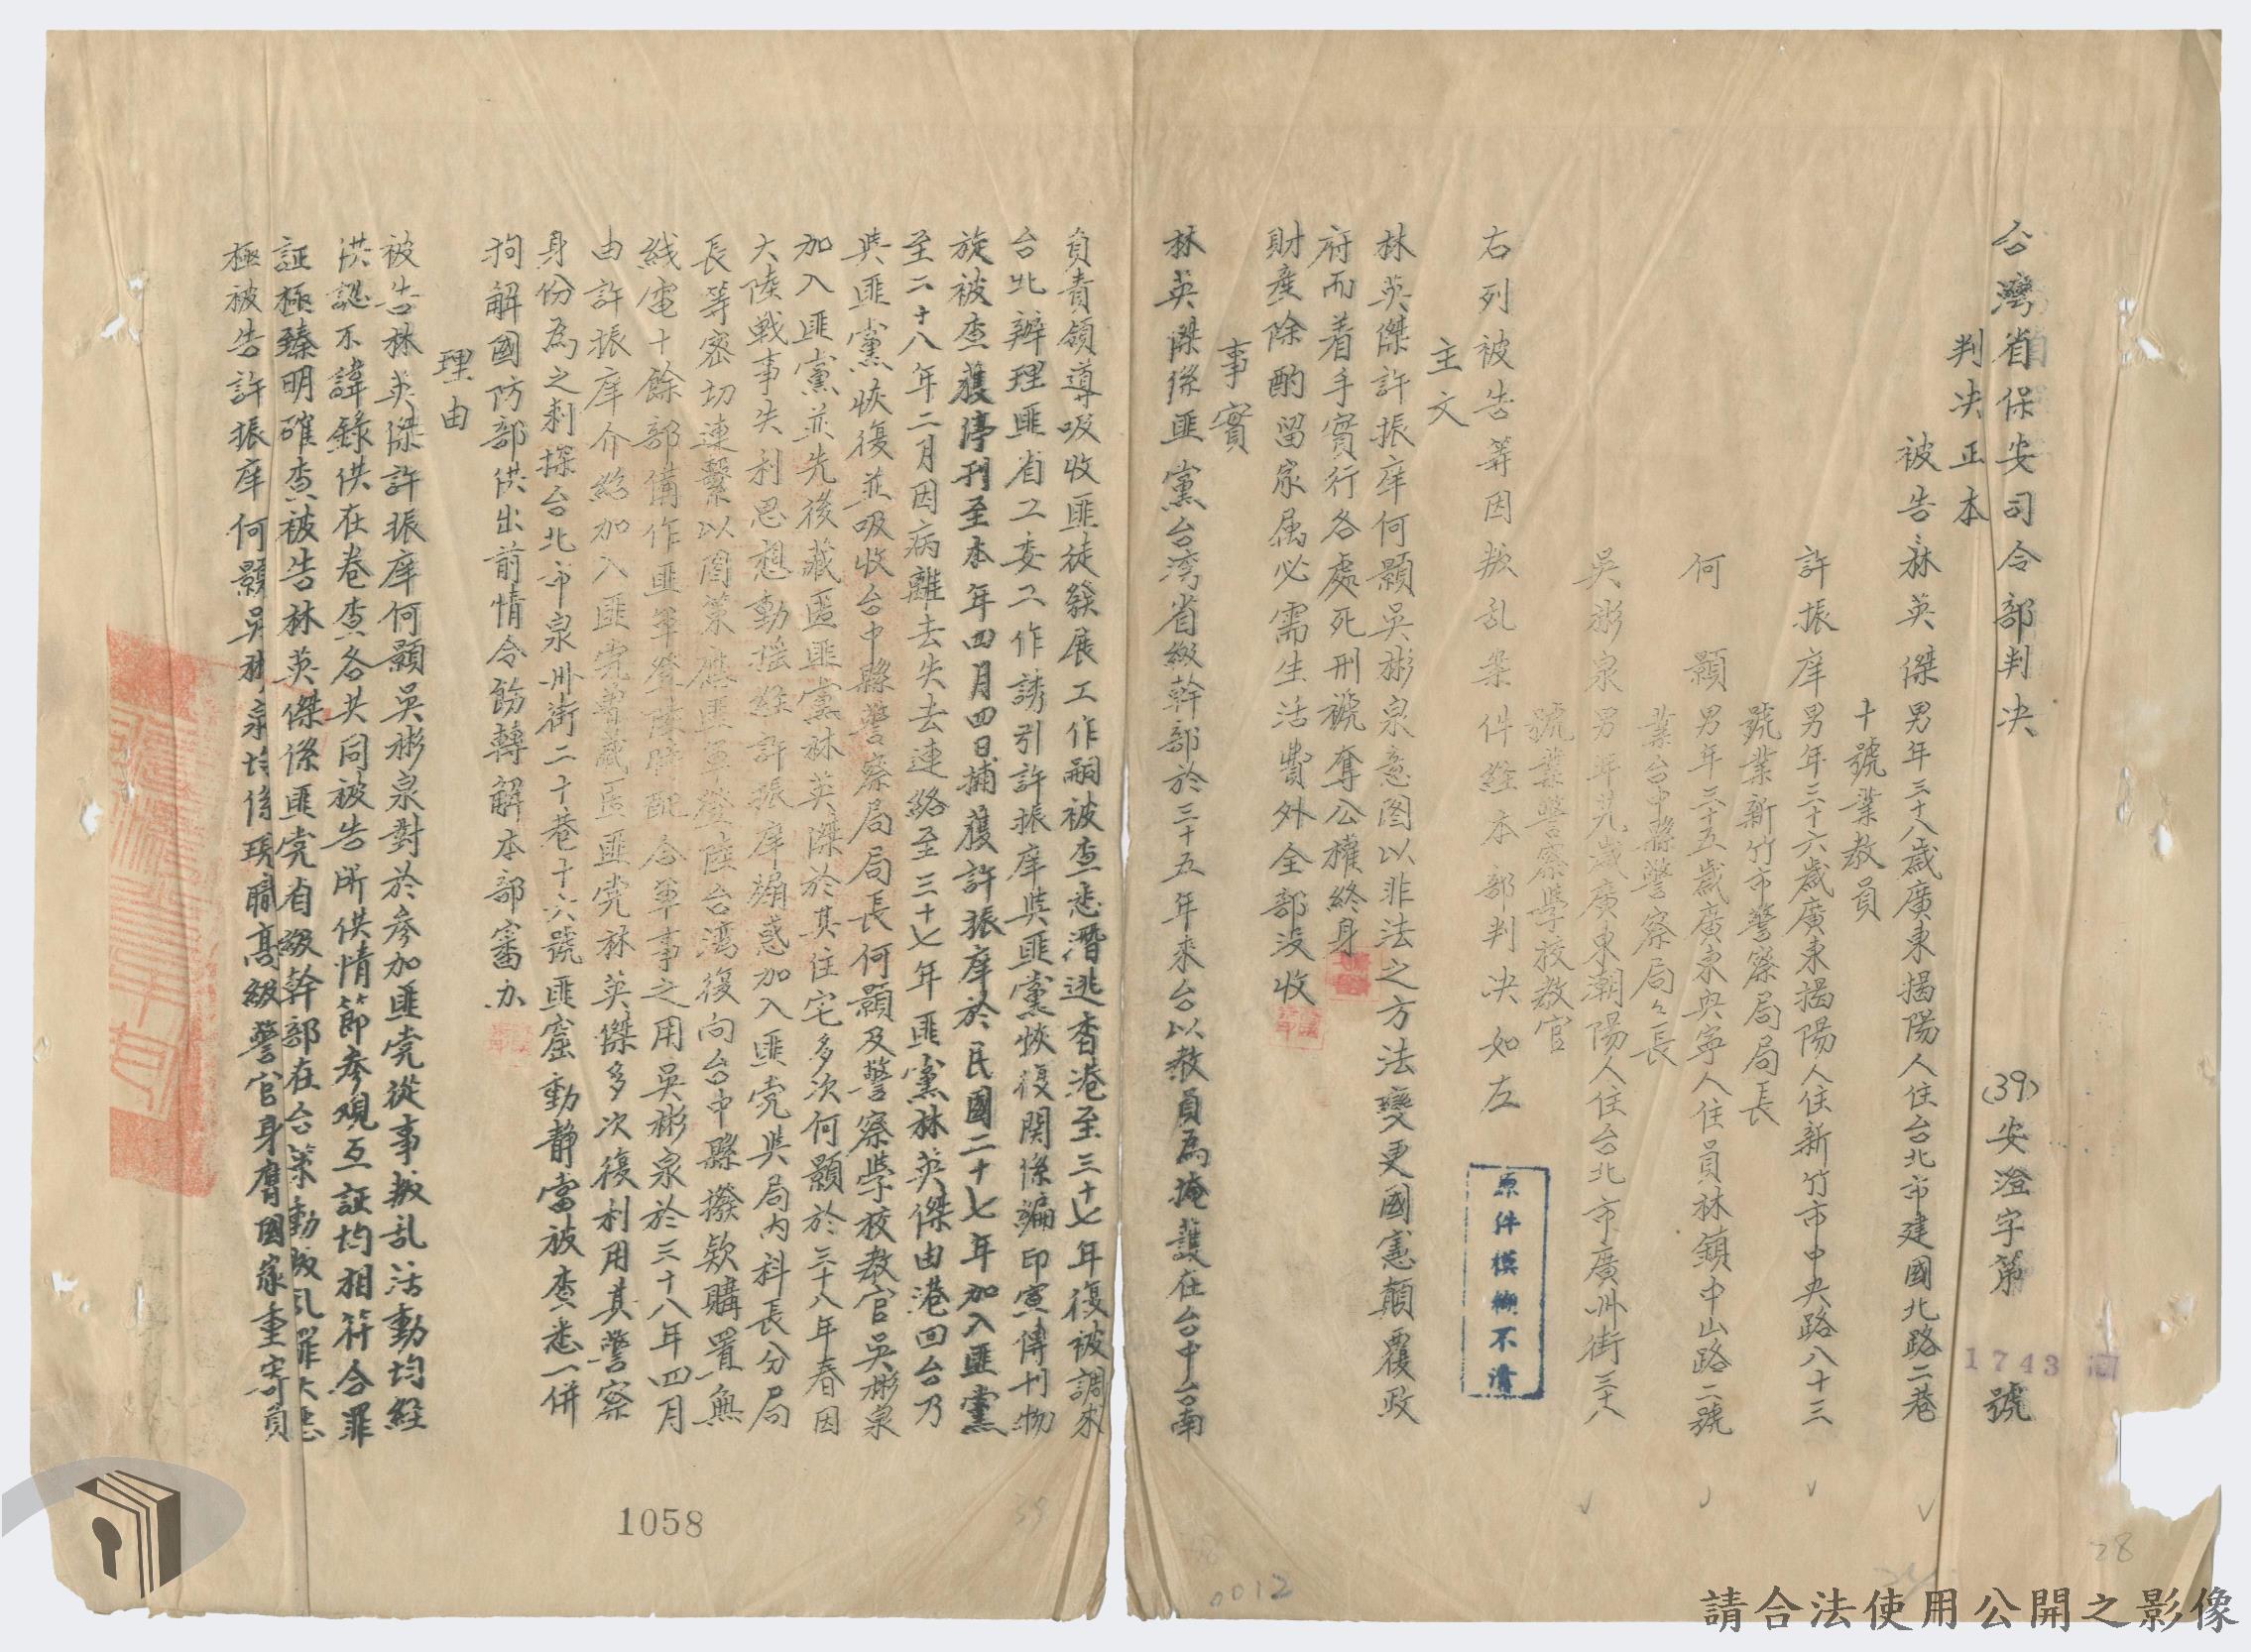 台灣省保安司令部判决 (39)安澄字第 1743 號
判决正本
被告 林英傑 男年三十八歲廣東揭陽人住台北市建國北路二巷
十號業教員
許振庠 男年三十六歲廣東揭陽人住新竹市中央路八十三
號業新竹市警察局局長
何 顯 男年三十五歲廣東興寧人住員林鎮中山路二號
業台中縣警察局々長
吳彬泉 男年 歲廣東潮陽人住台北市廣州街三十八
號業警察學校教官
右列被告等因叛乱案件經本部判决如左
主文
林英傑許振庠何顯吳彬泉意图以非法之方法變更國憲顛覆政
府而着手實行各處死刑褫奪公權終身
財產除酌留家属必需生活費外全部没收
事實
林英傑係匪黨台湾省級幹部於三十五年來台以教員為掩護在台中台南
負責領導吸收匪徒發展工作嗣被查悉潛逃香港至三十七年復被調來
台北辦理匪省工委工作誘引許振庠與匪黨恢復関係編印宣傳刊物
旋被查獲停刊至本年四月四日捕獲許振庠於民國二十七年加入匪黨
至二十八年二月因病離去失去連絡至三十七年匪黨林英傑由港回台乃
與匪黨恢復並吸收台中縣警察局局長何顯及警察學校教官吳彬泉
加入匪黨並先後藏匿匪黨林英傑於其住宅多次何顯於三十八年春因
大陸戰事失利思想動摇經許振庠煽惑加入匪党與局内科長分局
長等密切連繫以圖策應匪軍登陸台灣復向台中縣撥欵購置無
綫電十餘部備作匪軍登陸時配合軍事之用吳彬泉於三十八年四月
由許振庠介紹加入匪党曾藏匿匪党林英傑多次復利用其警察
身份為之刺探台北市泉州街二十巷十六號匪窟動靜當被查悉一併
拘解國防部供出前情令飭轉解本部審办
理由
被告林英傑許振庠何顯吳彬泉對於參加匪党從事叛乱活動均經
供認不諱錄供在卷查各共同被告所供情節參观互証均相符合罪
証極臻明確查被告林英傑係匪党省級幹部在台策動叛乱罪大惡
極被告許振庠何顯吳彬泉均係現職高級警官身膺國家重寄負
原件模糊不清
1058
0012
28
請合法使用公開之影像